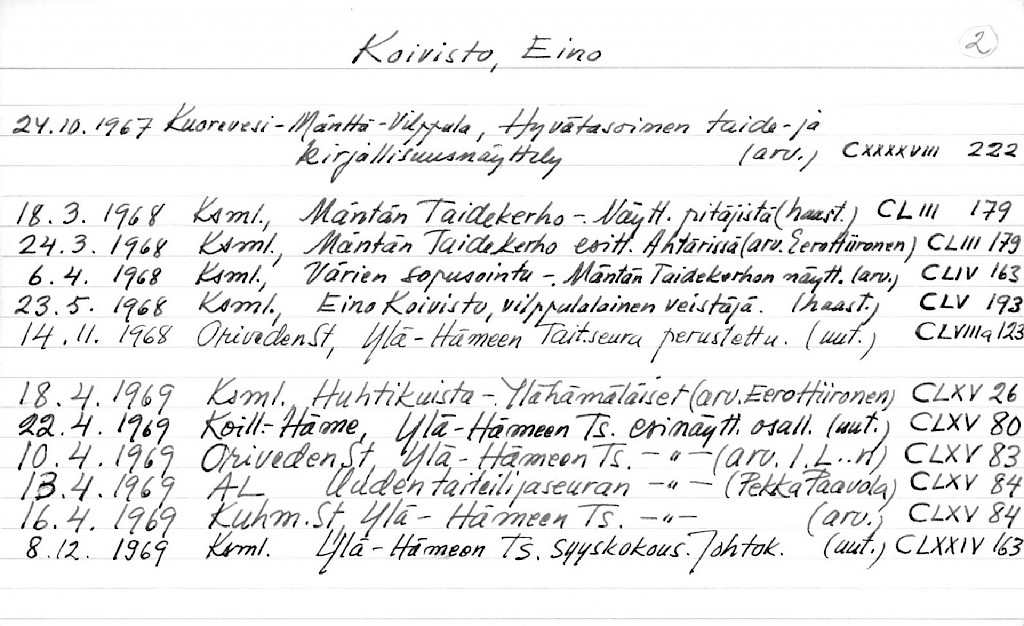 Koivisto, Eino 2
24.10.1967 Kuorevesi-Mänttä-Vilppula, Hyvätasoinen taide- ja
kirjallisuusnäyttely (arv.) CXXXXVIII 222
18.3.1968 Ksml., Mäntän Taidekerho - Näytt. pitäjistä (haast.) CLIII 179
24.3.1968 Ksml., Mäntän Taidekerho esitt. Ähtärissä (arv. Eero Hiironen) CLIII 179
6.4.1968 Ksml., Värien sopusointu - Mäntän Taidekerhon näytt. (arv.) CLIV 163
23.5.1968 Ksml., Eino Koivisto, vilppulalainen veistäjä. (haast.) CLV 193
14.11.1968 OrivedenSt, Ylä-Hämeen Tait.seura perustettu. (uut.) CLVIIIa 123
18.4.1969 Ksml. Huhtikuista - Ylähämäläiset (arv. Eero Hiironen) CLXV 26
22.4.1969 Koill-Häme, Ylä-Hämeen Ts. esinäytt. osall. (uut.) CLXV 80
10.4.1969 Oriveden St, Ylä-Hämeen Ts. -"- (arv. I.L..n) CLXV 83
13.4.1969 AL, Uuden taiteilijaseuran -"- (Pekka Paavola) CLXV 84
16.4.1969 Kuhm.St, Ylä-Hämeen Ts. -"- (arv.) CLXV 84
8.12.1969 Ksml. Ylä-Hämeen Ts. syyskokous. Johtok. (uut.) CLXXIV 163